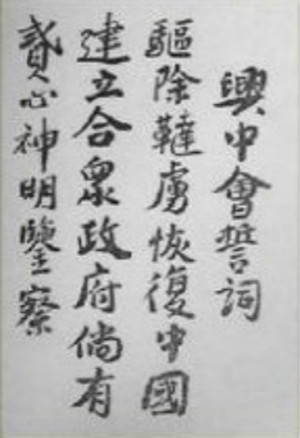 興中會誓詞
驅除韃虜恢復中國
建立合眾政府倘有
貳心神明鑒察